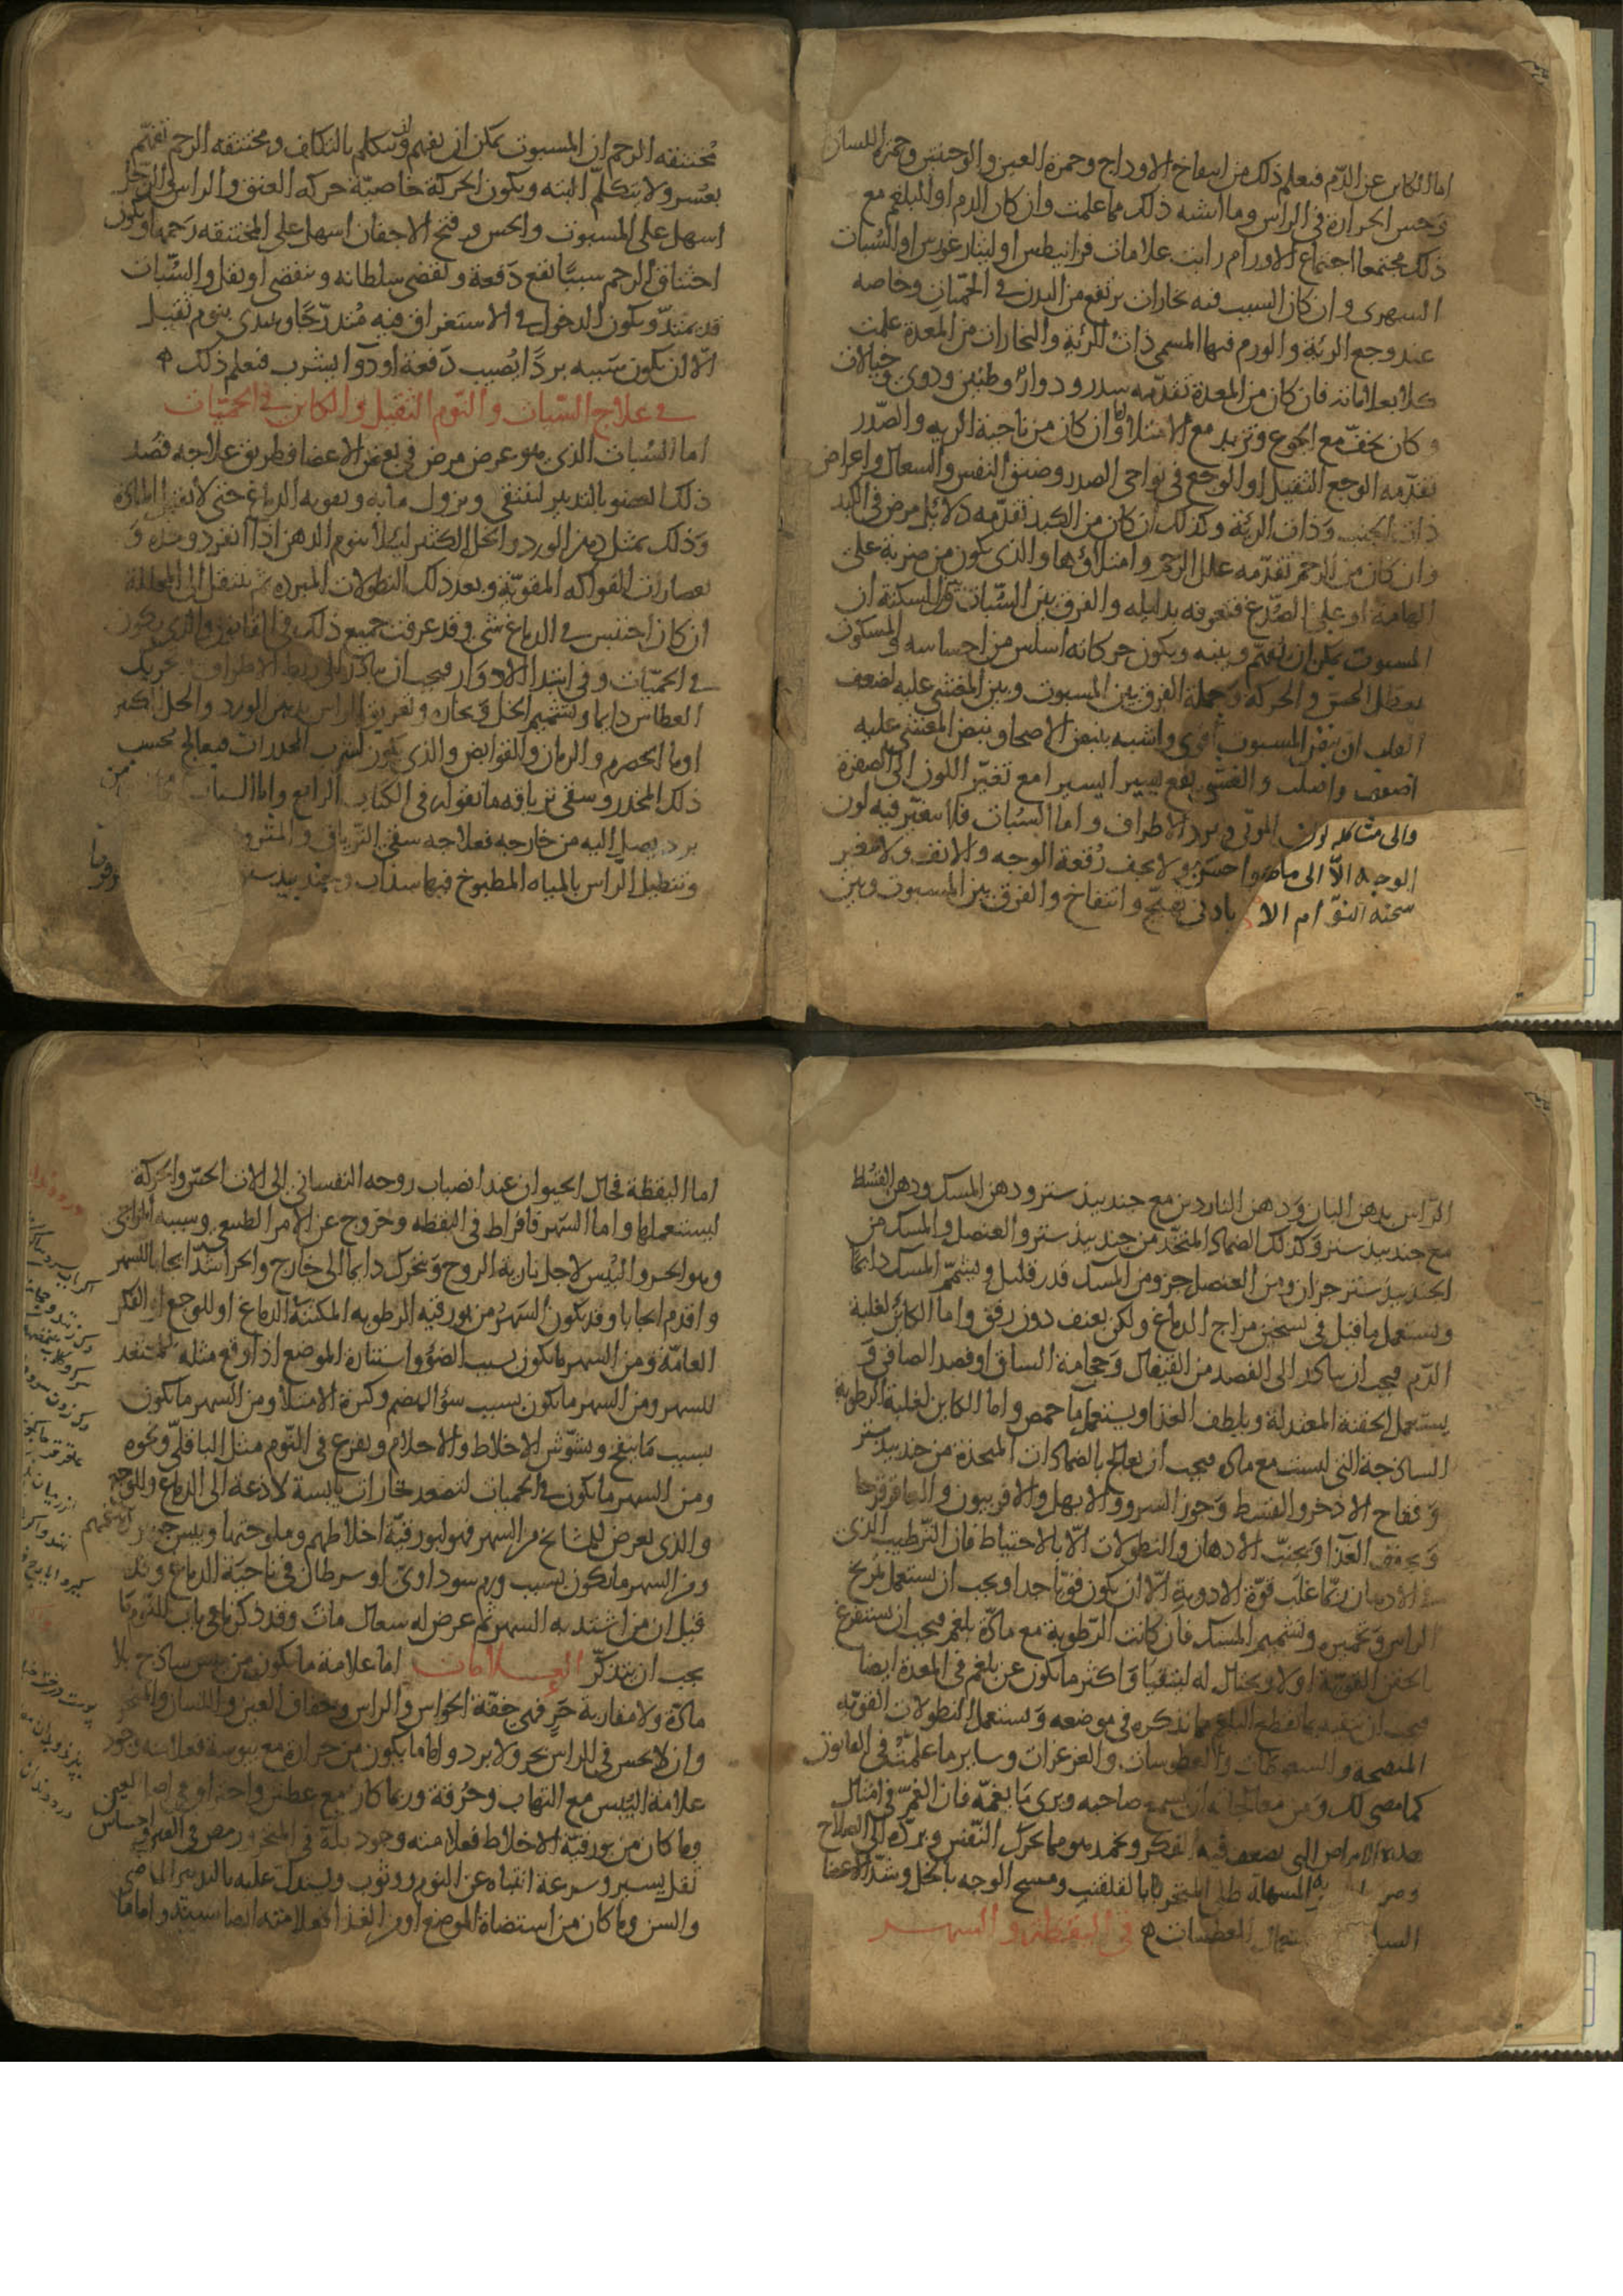 اما الكاىن عن الدم فيعلم ذلك من انتفاخ الاوداج وحمرة العين والوجنتين وحمرة اللسان
وحس الحرارة في الراس وما اشبه ذلك مما علمت وان كان الدم او البلغم مع
ذلك مجتمعا اجتماع الاورام رايت علامات قرانيطس او ليثارغوس او السبات
السهرى وان كان السبب فيه بخارات ترتفع من البدن في الحميات وخاصه
عند وجع الرية والورم فيها المسمى ذات الرئة والبخارات من المعدة علمت
كلا بعلاماته فان كان من المعدة تقدمه سدر ودوار وطنين ودوى وخيالات
وكان يخف مع الجوع وتزيد مع الامتلا وان كان من ناحية الريه والصدر
تقدمه الوجع الثقيل او الوجع في نواحى الصدر وضيق النفس والسعال واعراض
ذات الجنب وذات الرئة وكذلك ان كان من الكبد تقدمه دلائل مرض في الكبد
وان كان من الرحم تقدمه علل الرحم وامتلاؤها والذى يكون من ضربة على
الهامة او على الصدغ فتعرفه بدليله والفرق بين السبات والسكتة ان
المسبوت يمكن ان يفهم وينبه ويكون حركاته اسلس من احساسه والمسكوت
معطل الحس والحركة وجملة الفرق بين المسبوت وبين المغشى عليه لضعف
القلب ان نبض المسبوت اقوى واشبه بنبض الاصحا ونبض المغشى عليه
اضعف واصلب والغشى يقع يسيرا يسيرا مع تغير اللون الى الصفرة
والى مشاكله لون الموتى وبرد الاطراف واما السبات فلا يتغير فيه لون
الوجه الا الى ما هو احسن ولا يخف رقعة الوجه والانف ولا يتغير
سحنة النوام الا بادنى تهيج وانتفاخ والفرق بين المسبوت وبين
مختنقه الرحم ان المسبوت يمكن ان يفهم وان يتكلم بالتكلف ومختنقه الرحم تفهم
بعسر ولا تتكلم البته ويكون الحركة خاصية حركه العنق والراس والرجل
اسهل على المسبوت والحس وفتح الاجفان اسهل على المختنقه رحمها ويكون
اختناق الرحم سببا يقع دفعة وتقضى سلطانه وينقضى او يقتل والسبات
قد يمتد ويكون الدخول في الاستغراق فيه متدرجا ويبتدى بنوم ثقيل
الا ان يكون سببه بردا يصيب دفعة او دوا يشرب فيعلم ذلك
في علاج السبات والنوم الثقيل والكاىن في الحميات
اما السبات الذى هو عرض مرض في بعض الاعضا فطريق علاجه قصد
ذلك العضو بالتدبير لينقى ويزول ما به وتقويه الدماغ حتى لا يقبل المادة
وذلك بمثل دهن الورد والخل الكثير لئلا ينوم الدهن اذا انفرد وحده و
بعصارات الفواكه المقوية وبعد ذلك النطولات المبرده ثم ينتقل الى المحللة
ان كان احتبس في الدماغ شى وقد عرفت جميع ذلك في القانون والذى يكون
في الحميات وفى ابتدا الادوار فيجب ان يبادر الى ربط الاطراف وتحريك
العطاس دايما وتشميم الخل وبخاره وتعريق الراس بدهن الورد والخل الكثير
اوما الحصرم والرمان والقوابض والذى يكون لشرب المخدرات فيعالج بحسب
ذلك المخدر وسقى ترياقه ما نقوله في الكتاب الرابع واما السبات من
برد يصل اليه من خارجه فعلاجه سقى الترياق والمثرود
وتنطيل الراس بالمياه المطبوخ فيها سذاب وجندبيدستر
الراس بدهن البان ودهن الناردين مع جندبيدستر ودهن المسك ودهن القسط
مع جندبيدستر وكذلك الضماد المتخذ من جندبيدستر والعنصل والمسك من
الجندبيدستر جزان ومن العنصل جز ومن المسك قدر قليل ويشمم المسك دايما
ويستعمل ما قيل في تسخين مزاج الدماغ ولكن بعنف دون رفق واما الكائن لغلبة
الدم فيجب ان يبادر الى الفصد من القيفال وحجامة الساق او فصد الصافن و
يستعمل الحقنة المعتدلة ويلطف الغذا ويستعمل ما حمص واما الكاىن لغلبة الرطوبة
الساذجة التى ليست مع ماده فيجب ان يعالج بالضمادات المتخذة من جندبيدستر
وفقاح الاذخر والقسط وجوز السرو والابهل والافربيون والعاقرقرحا
ويخفف الغذا ويجنب الادهان والنطولات الا بالاحتياط فان الترطيب الذى
في الادهان ربما غلب قوة الادوية الا ان يكون قويا جدا ويجب ان يستعمل تمريخ
الراس وتخميره وتشميم المسك فان كانت الرطوبة مع مادة بلغم فيجب ان يستفرغ
بالحقن القوية اولا ويحتال له ليتقيا واكثر ما يكون عن بلغم في المعدة ايضا
فيجب ان ينقيه بما يقطع البلغم مما نذكره في موضعه ويستعمل النطولات القويه
المنضجه والسعوطات والعطوسات والغرغرات وساير ما علمته في القانون
كما مضى لك ومن معالجاته ان يسمع صاحبه ويرى ما يغمه فان الغم في امثال
هذه الامراض التى يضعف فيها الفكر ويجمد هو مما يحرك النفس ويرده الى الصلاح
المسهلة طلى المنخر بالقلقنت ومسح الوجه بالخل وشد الاعضا
العطسات في اليقظه والسهر
اما اليقظة فحال الحيوان عند انصباب روحه النفسانى الى الات الحس والحركة
ليستعملها واما السهر فافراط في اليقظه وخروج عن الامر الطبيعى وسببه المزاجى
وهو الحر واليبس لاجل نارية الروح وتتحرك دايما الى خارج والحر اشد ايجابا للسهر
واقدم ايجابا وقد يكون السهر من بورقيه الرطوبه المكتنة الدماغ او للوجع او الفكر
العامة ومن السهر ما يكون بسبب الضوء واستنارة الموضع اذا وقع مثله للمستعد
للسهر ومن السهر ما يكون بسبب سؤ الهضم وكثرة الامتلا ومن السهر ما يكون
بسبب ما ينفخ ويشوش الاخلاط والاحلام ويفزع في النوم مثل الباقلى ونحوه
ومن السهر ما يكون في الحميات لتصعد بخارات يابسة لاذعة الى الدماغ وللوجع
والذى يعرض للمشايخ من السهر فهو لبورقية اخلاطهم وملوحتها ويبس جوهر ادمغتهم
ومن السهر ما يكون بسبب ورم سوداوى او سرطان في ناحية الدماغ وقد
قيل ان من اشتد به السهر ثم عرض له سعال مات وقد ذكرنا في باب النوم ما
يجب ان يتذكر العلامات اما علامة ما يكون من يبس ساذج بلا
مادة ولا مقاربة حر فهى خفة الحواس والراس وجفاف العين واللسان والمنخر
وان لا يحس في الراس بحر ولا برد واما ما يكون من حرارة مع يبوسة فعلامته وجود
علامة اليبس مع التهاب وحرقة وربما كان مع عطش واحتراق في اصل العين
وما كان من بورقية الاخلاط فعلامته وجود بلة في المنخر ورمص في العين واحساس
ثقل يسير وسرعة انتباه عن النوم ووثوب ويستدل عليه بالتدبير الماضى
والسن وما كان من استضاة الموضع او من الغذا فعلامته ايضا سببه واما ما